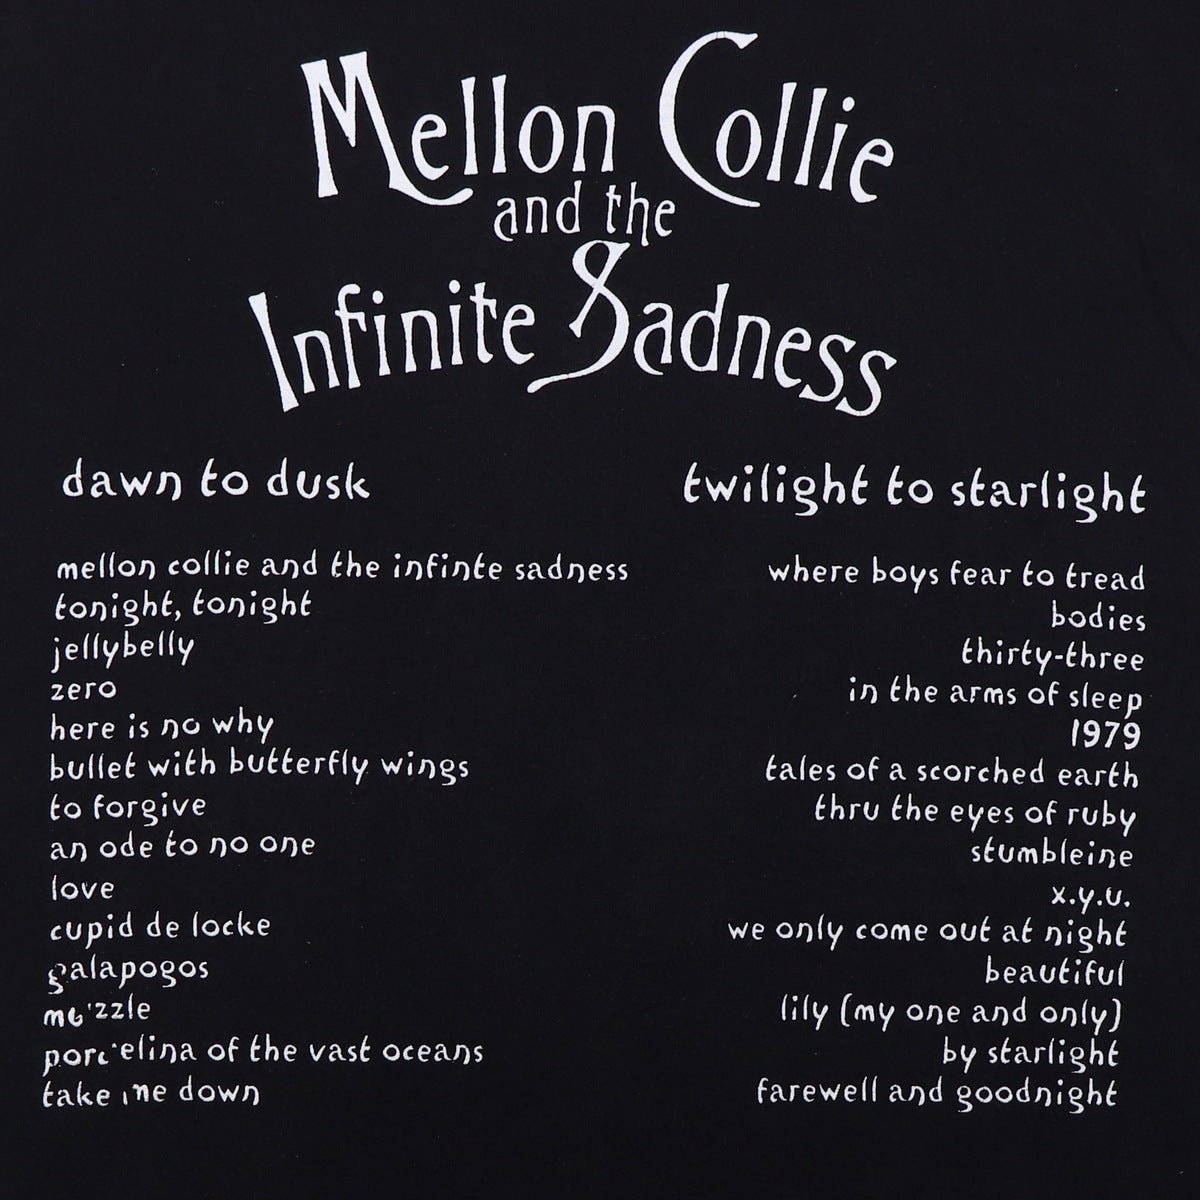 Mellon Collie
and the
Infinite Sadness
dawn to dusk
mellon collie and the infinte sadness
tonight, tonight
jellybelly
zero
here is no why
bullet with butterfly wings
to forgive
an ode to no one
love
cupid de locke
galapogos
muzzle
porcelina of the vast oceans
take me down
twilight to starlight
where boys fear to tread
bodies
thirty-three
in the arms of sleep
1979
tales of a scorched earth
thru the eyes of ruby
stumbleine
x.y.u.
we only come out at night
beautiful
lily (my one and only)
by starlight
farewell and goodnight